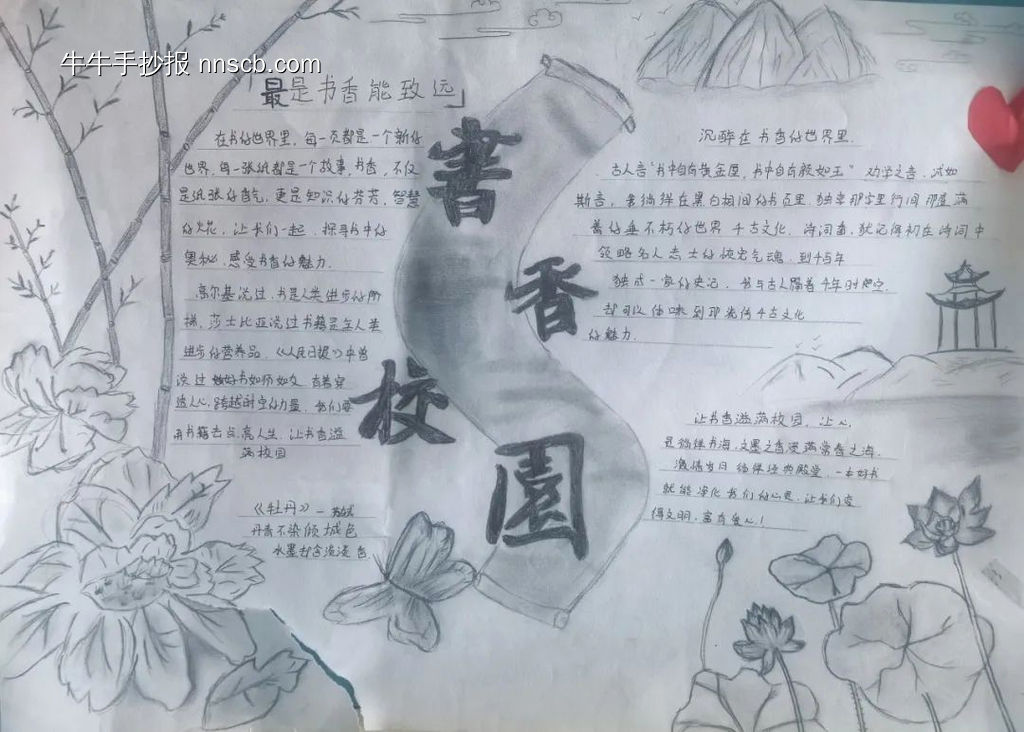 牛牛手抄报 nnscb.com
「最是书香能致远」
書
香
校
園
在书的世界里，每一页都是一个新的
世界，每一张纸都是一个故事，书香，不仅
是纸张的香气，更是知识的芬芳，智慧
的火花，让我们一起，探寻书中的
奥秘，感受书香的魅力．
高尔基说过，书是人类进步的阶
梯，莎士比亚说过书籍是全人类
进步的营养品，《人民日报》中曾
说过 好书如师如友，有着穿
透人心，跨越时空的力量，我们要
用书籍去点亮人生，让书香溢
满校园
《牡丹》—
丹青不染倾城色
水墨
沉醉在书香的世界里．
古人言"书中自有黄金屋，书中自有颜如玉" 劝学之音，
斯言，我徜徉在黑白相间的书页里，独享那字里行间 那
着的 不朽的世界 千古文化，诗词
领略名人志士的 气魂，
独成一家的史记，书与古人隔着千年时空，
却可以体味到那光传千古文化
的魅力．
让书香溢满校园，让心
徜徉书海，文墨之香
激情 徜徉经典殿堂，一本好书
就能净化我们的心灵，让我们变
得文明，富有爱心！